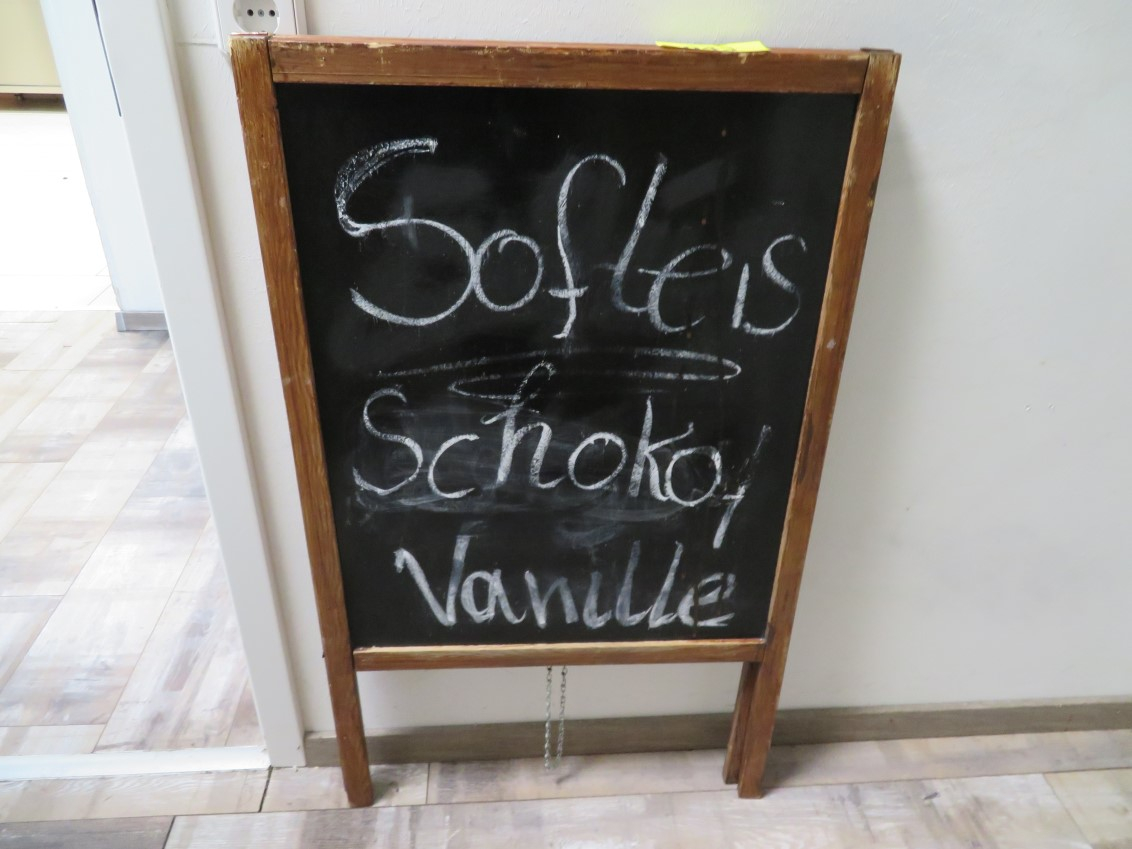 Sofleis
Schoko/
Vanille